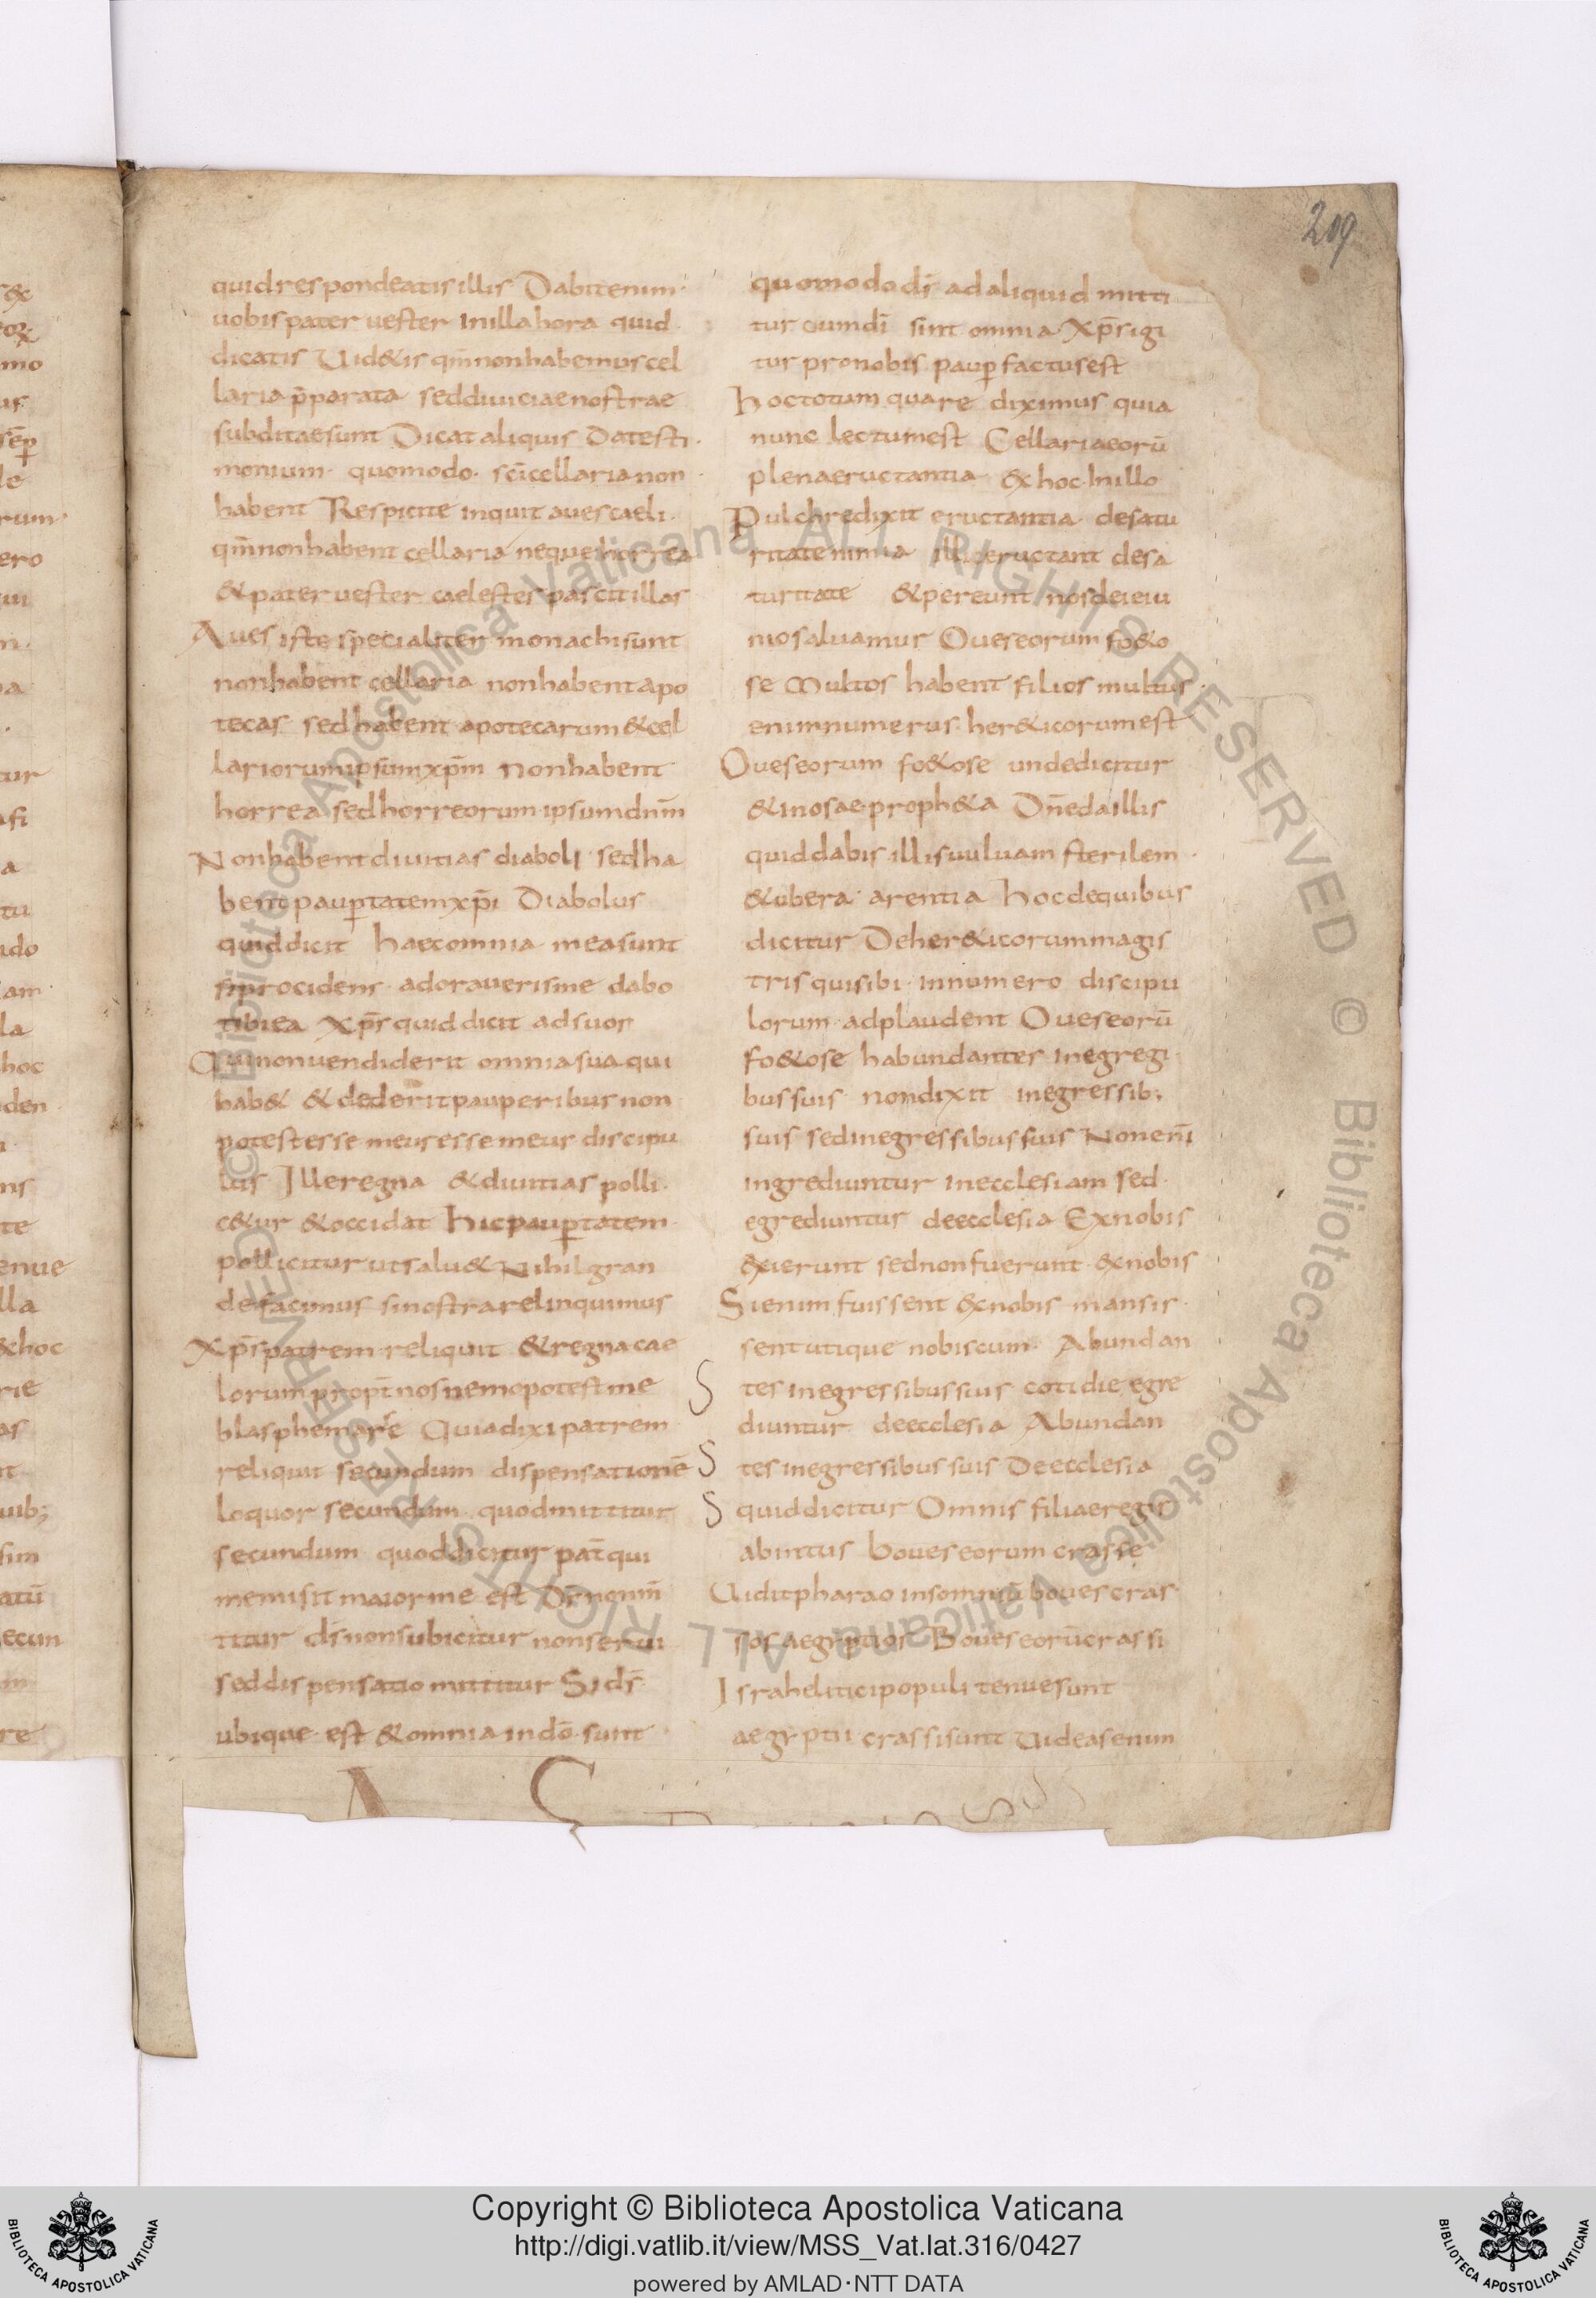 209
quid respondeatis illis Dabit enim·
uobis pater uester In illa hora quid·
dicatis Uid&is qm̄ non habemus cel
laria p̄parata sed diuiciae nostrae
subditae sunt Dicat aliquis Da testi·
monium· quomodo· sc̄i cellaria non·
habent Respicite inquit aues caeli·
qm̄ non habent cellaria neque horrea
& pater uester caelestes pascit illas
Aues iste specialiter monachi sunt
non habent cellaria non habent apo
tecas sed habent apotecarum & cel
lariorum ipsum xp̄m Non habent
horrea sed horreorum ipsum dn̄m
Non habent diuitias diaboli sed ha
bent paup̱tatem xp̄i Diabolus
quid dicit haec omnia mea sunt
si procidens· adoraueris me dabo
tibi ea Xp̄s quid dicit ad suos
Qui non uendiderit omnia sua qui
hab& & dederit pauperibus non
potest esse meus esse meus discipu
lus Ille regna & diuitias polli·
c&ur & occidat hic paup̱tatem·
pollicitur ut salu& Nihil gran
de facimus si nostra relinquimus
Xp̄s patrem reliquit & regna cae
lorum propt̄ nos nemo potest me
blasphemare Quia dixi patrem
reliquit secundum dispensationē
loquor secundum quod mittitur
secundum quod dicitur pat̄ qui
me misit maior me est Ds̄ non mit̄
titur ds̄ non subicitur non serui
sed dispensatio mittitur Si ds̄
ubique est & omnia in dō sunt
quomodo ds̄ ad aliquid mitti
tur cum dī sint omnia Xp̄s igi
tur pro nobis paup̱ factus est
hoc totum quare diximus quia
nunc lectum est Cellaria eorū
plena eructantia ex hoc In illo
Pulchre dixit eructantia de satu
ritate nimia illi eructant de sa
turitate & pereunt nos de ieiu
nio saluamur Oues eorum fo&o
se Multos habent filios multus·
enim numerus her&icorum est
Oues eorum fo&ose unde dicitur
& in osae proph&a Dn̄e da illis
quid dabis illis uuluam sterilem·
& ubera arentia hoc de quibus
dicitur De her&icorum magis
tris qui sibi in numero discipu
lorum adplaudent Oues eorū
fo&ose habundantes In egregi·
bus suis non dixit in egressib;
suis sed in egressibus suis Non enī
ingrediuntur in ecclesiam sed·
egrediuntur de ecclesia Ex nobis
exierunt sed non fuerunt ex nobis
Si enim fuissent ex nobis mansis·
sent utique nobiscum· Abundan
tes in egressibus suis cotidie egre
diuntur de ecclesia Abundan
tes in egressibus suis De ecclesia
quid dicitur Omnis filiae regis
ab intus boues eorum crasse
Uidit pharao in somniū boues cras·
sos aegyptios Boues eorū crassi
Israhelitici populi tenue sunt
aegyptii crassi sunt Uideas enim
© Biblioteca Apostolica Vaticana ALL RIGHTS RESERVED © Biblioteca Apostolica Vaticana ALL RIGHTS RESERVED
Copyright © Biblioteca Apostolica Vaticana
http://digi.vatlib.it/view/MSS_Vat.lat.316/0427
powered by AMLAD·NTT DATA
BIBLIOTECA APOSTOLICA VATICANA
BIBLIOTECA APOSTOLICA VATICANA